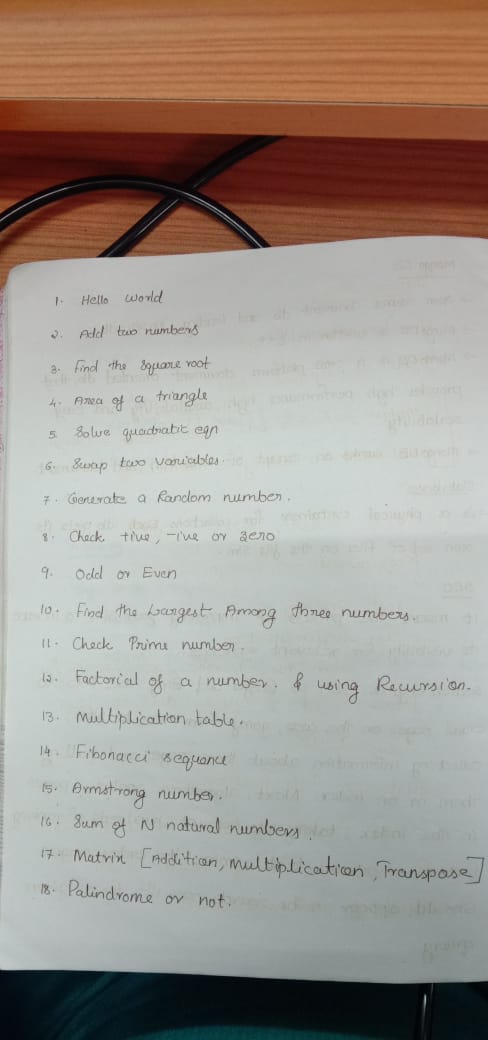 1. Hello world
2. Add two numbers
3. Find the square root
4. Area of a triangle
5. Solve quadratic eqn
6. Swap two variables.
7. Generate a Random number.
8. Check +ive, -ive or zero
9. Odd or Even
10. Find the Largest Among three numbers.
11. Check Prime number.
12. Factorial of a number. & using Recursion.
13. Multiplication table.
14. Fibonacci sequence
15. Armstrong number.
16. Sum of N natural numbers.
17. Matrix [Addition, multiplication, Transpose]
18. Palindrome or not.